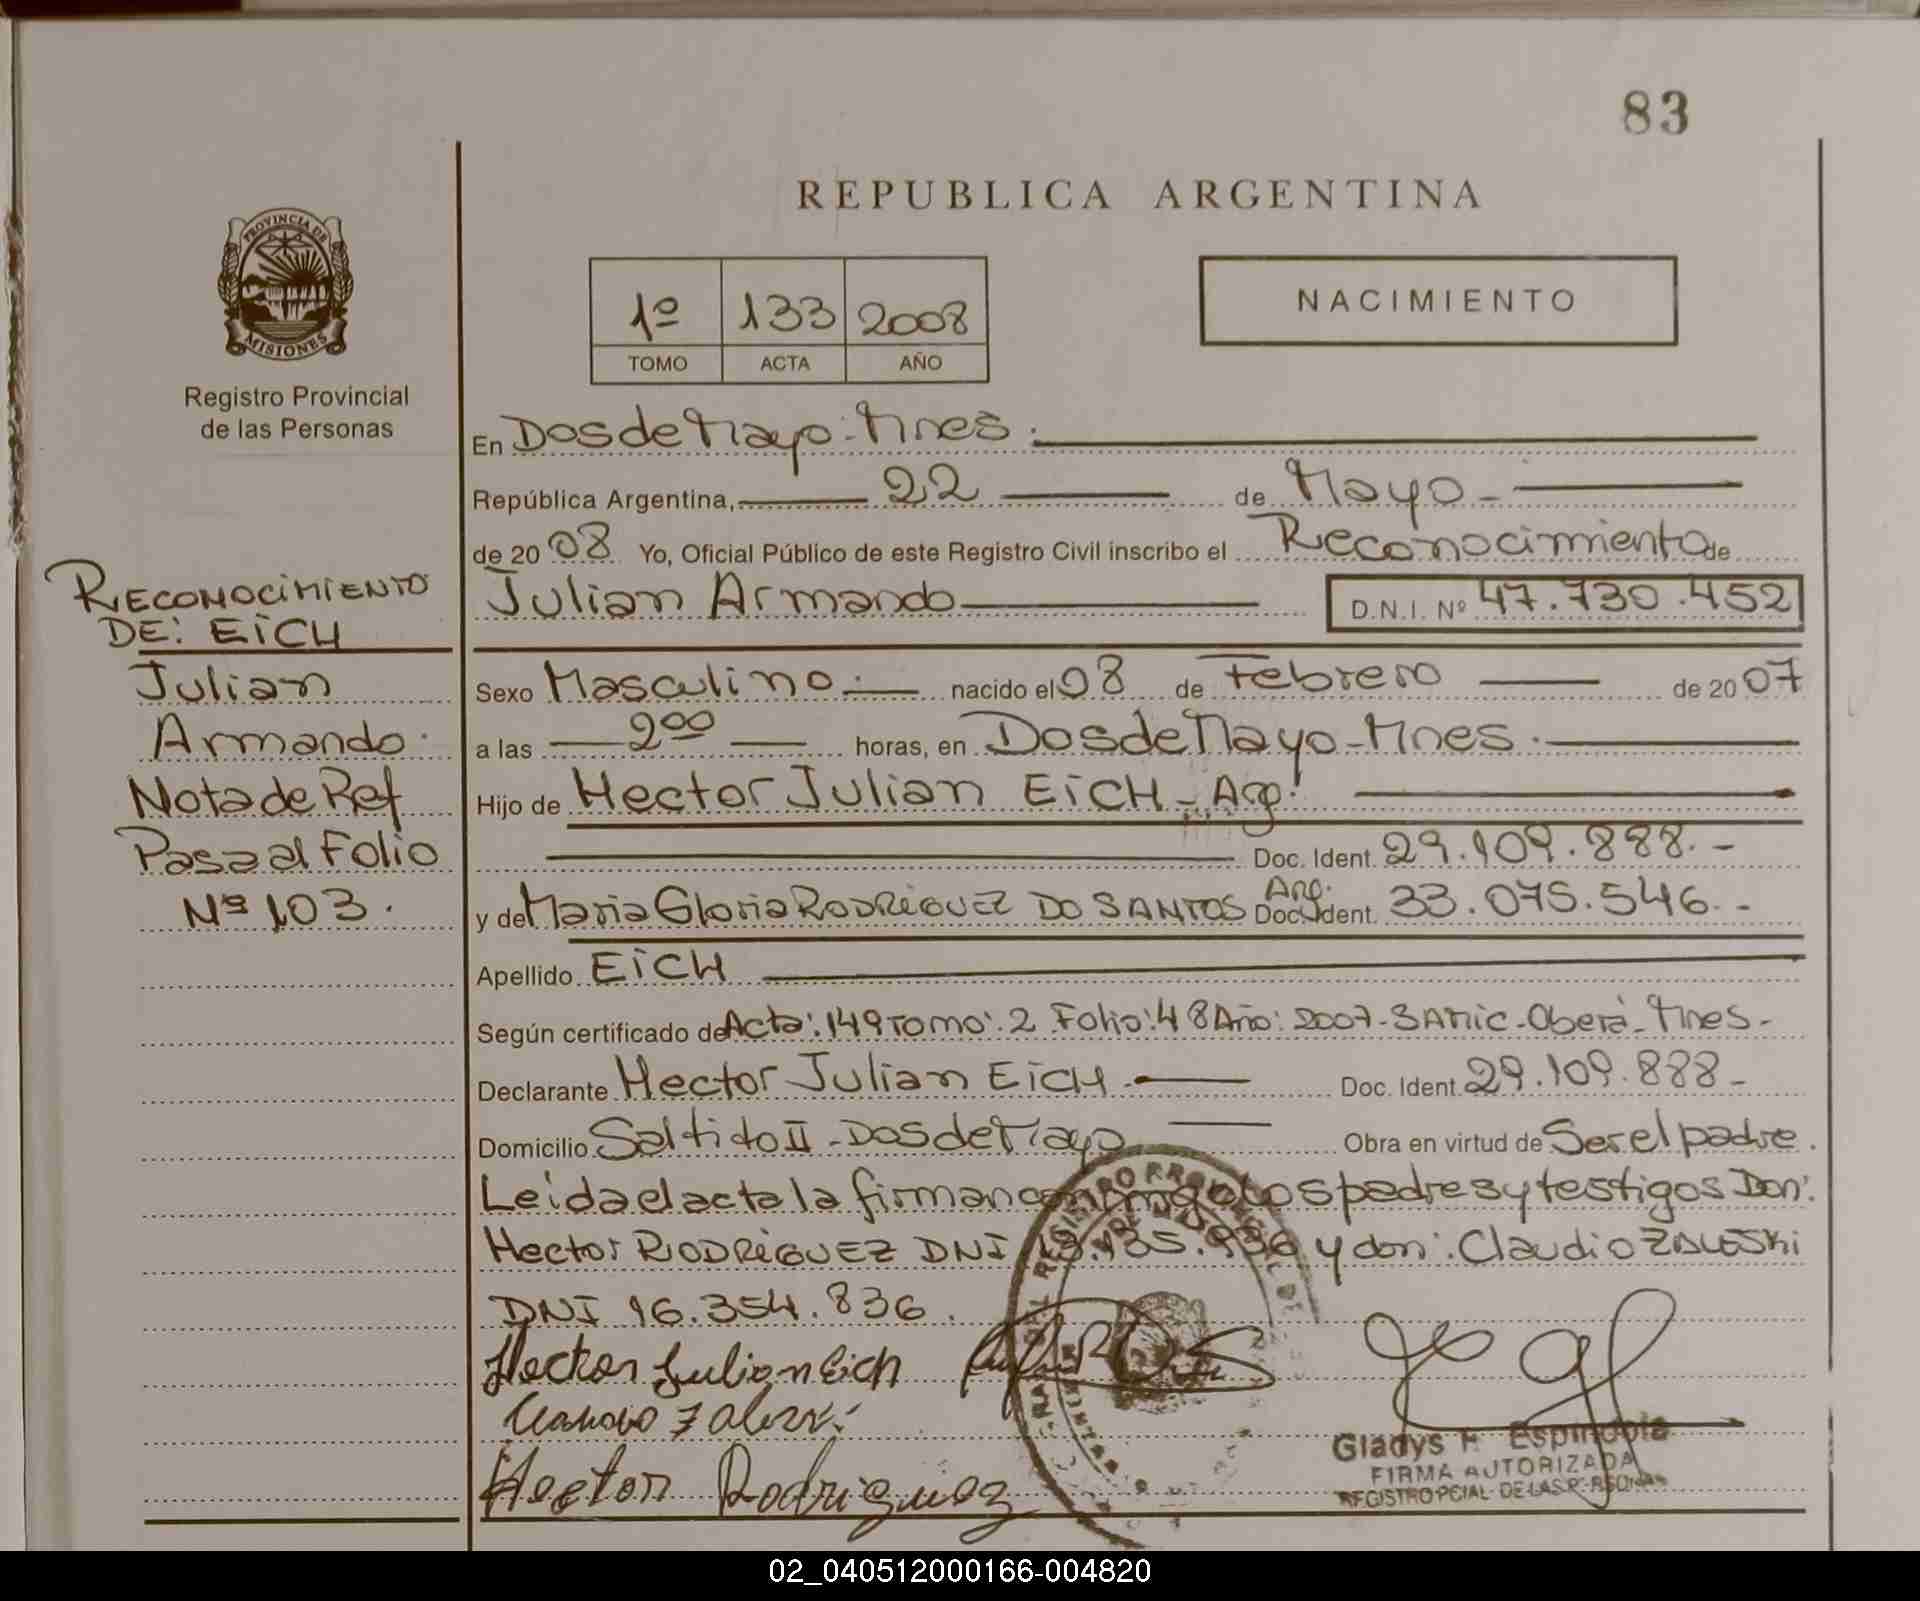 83
REPUBLICA ARGENTINA
PROVINCIA DE
MISIONES
Registro Provincial
de las Personas
1º 133 2008
TOMO ACTA AÑO
NACIMIENTO
En Dos de Mayo - Mnes.
República Argentina, 22 de Mayo -
de 20 08 Yo, Oficial Público de este Registro Civil inscribo el Reconocimiento de
Julian Armando D.N.I. Nº 47.730.452
Sexo Masculino. nacido el 08 de Febrero de 20 07
a las 2 00 horas, en Dos de Mayo - Mnes.
Hijo de Hector Julian EiCH - Arg.
Doc. Ident. 29.109.888. -
y de Maria Gloria RODRiGUEZ DO SANTOS Arg. Doc. Ident. 33.075.546. -
Apellido EiCH
Según certificado de Acta: 149 Tomo: 2 Folio: 48 Año: 2007 - SAMIC - Oberá - Mnes -
Declarante Hector Julian EiCH. Doc. Ident. 29.109.888 -
Domicilio Saltito II - Dos de Mayo Obra en virtud de Ser el padre.
Leida el acta la firman conmigo los padres y testigos Don:
Hector RODRiGUEZ DNI y don: Claudio ZALESKi
DNI 16.354.836.
Hector Julian Eich
Hector Rodriguez
Gladys F. Espindola
FIRMA AUTORIZADA
REGISTRO PCIAL. DE LAS PERSONAS
RECONOCiMiENTO
DE: EiCH
Julian
Armando.
Nota de Ref
Pasa al Folio
Nº 103.
02_040512000166-004820